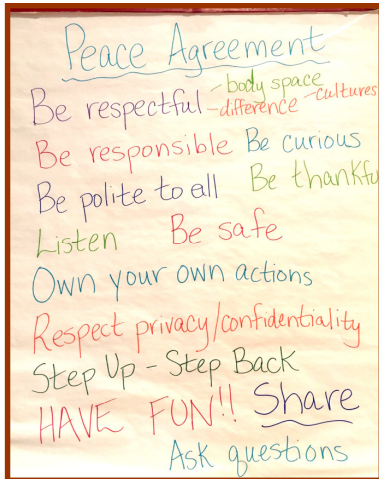 Peace Agreement
Be respectful - body space
- difference - cultures
Be responsible Be curious
Be polite to all Be thankfu
Listen Be safe
Own your own actions
Respect privacy/confidentiality
Step Up - Step Back
HAVE FUN!! Share
Ask questions